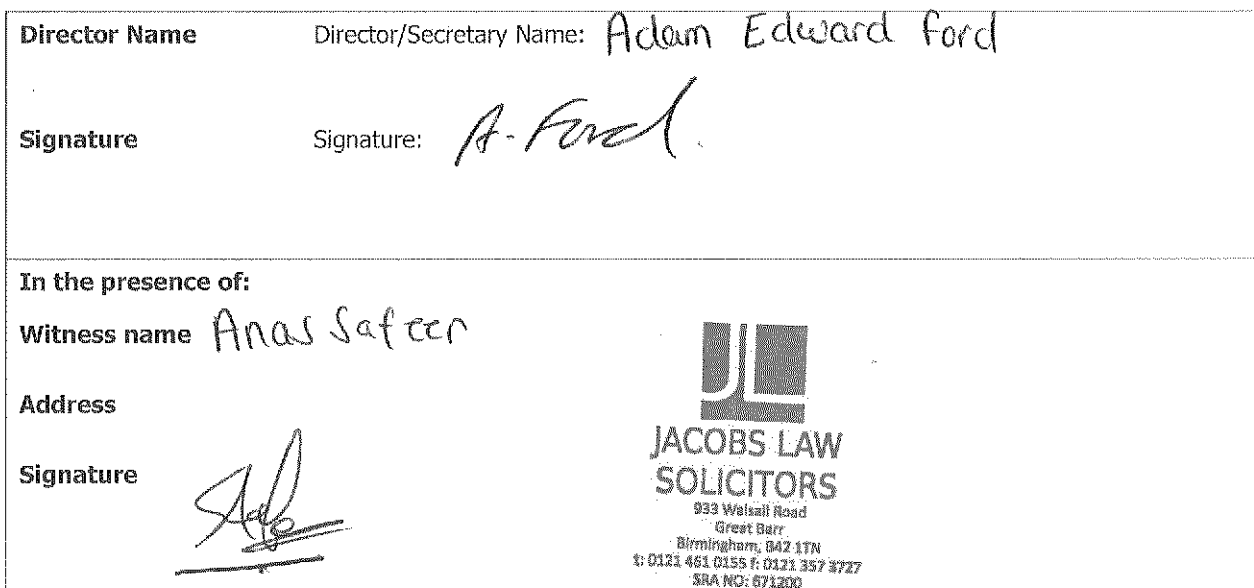 Director Name Director/Secretary Name: Adam Edward Ford
Signature Signature: A. Ford.
In the presence of:
Witness name Anas Safeer
Address
Signature
JL
JACOBS LAW
SOLICITORS
933 Walsall Road
Great Barr
Birmingham, B42 1TN
t: 0121 461 0155 f: 0121 357 3727
SRA NO: 671200